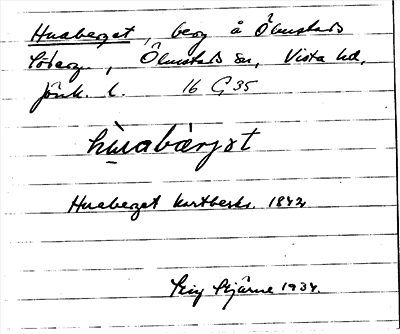 Huaberget, berg å Ölmstads
Söberg, Ölmstads sn, Vista hd,
Jönk. l. 16 G 35
hùabærjət
Huaberget kartbeskr. 1842
Stig Stjärne 1934.